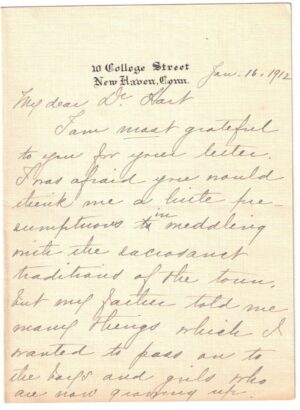 10 College Street
New Haven, Conn.
Jan. 16. 1912
My dear Dr Hart
I am most grateful
to you for your letter.
I was afraid you would
think me a little pre-
sumptuous in meddling
with the sacrosanct
traditions of the town,
but my father told me
many things which I
wanted to pass on to
the boys and girls who
are now growing up.